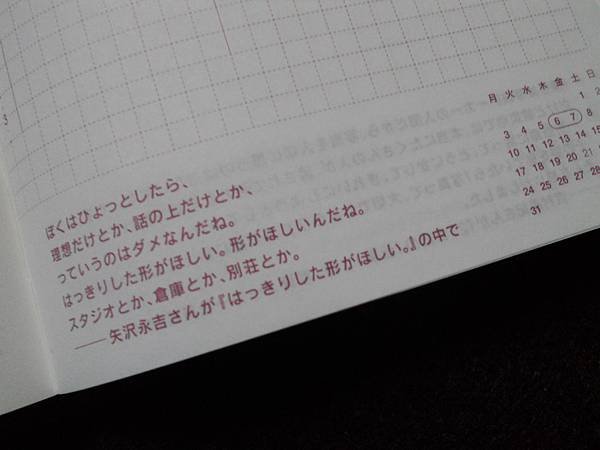 3
ぼくはひょっとしたら、
理想だけとか、話の上だけとか、
っていうのはダメなんだね。
はっきりした形がほしい。形がほしいんだね。
スタジオとか、倉庫とか、別荘とか。
――矢沢永吉さんが『はっきりした形がほしい。』の中で
月 火 水 木 金 土 日
1 2
3 4 5 6 7 8
10 11 12 13 14 15
17 18 19 20 21 22
24 25 26 27 28 29
31